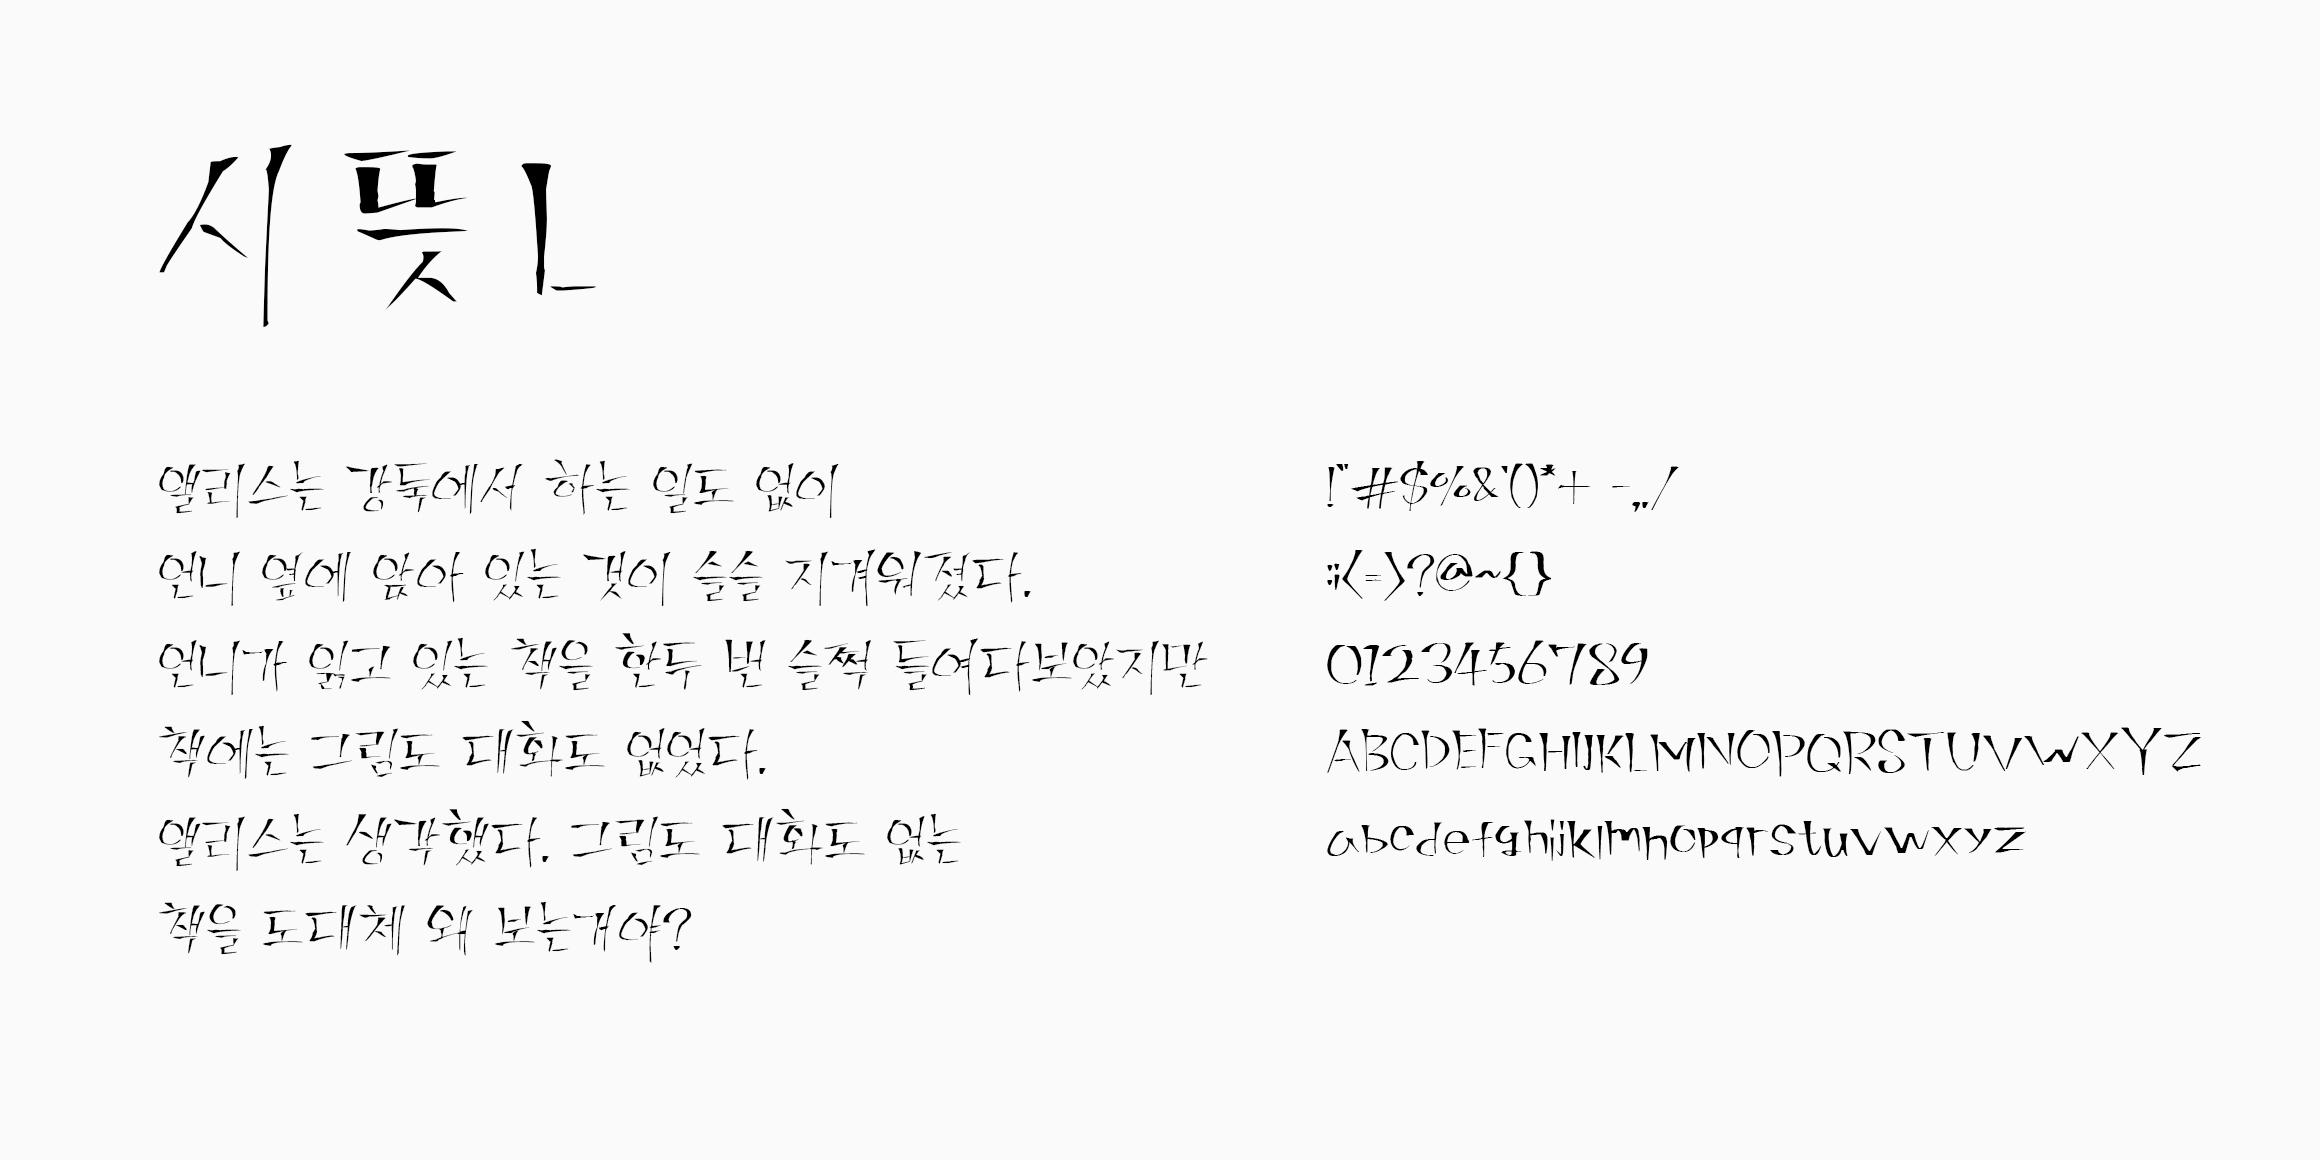 시뜻 L
앨리스는 강둑에서 하는 일도 없이
언니 옆에 앉아 있는 것이 슬슬 지겨워졌다.
언니가 읽고 있는 책을 한두 번 슬쩍 들여다보았지만
책에는 그림도 대화도 없었다.
앨리스는 생각했다. 그림도 대화도 없는
책을 도대체 왜 보는거야?
!"#$%&'()*+ -,./
:;<=>?@~{}
0123456789
ABCDEFGHIJKLMNOPQRSTUVWXYZ
abcdefghijklmnopqrstuvwxyz